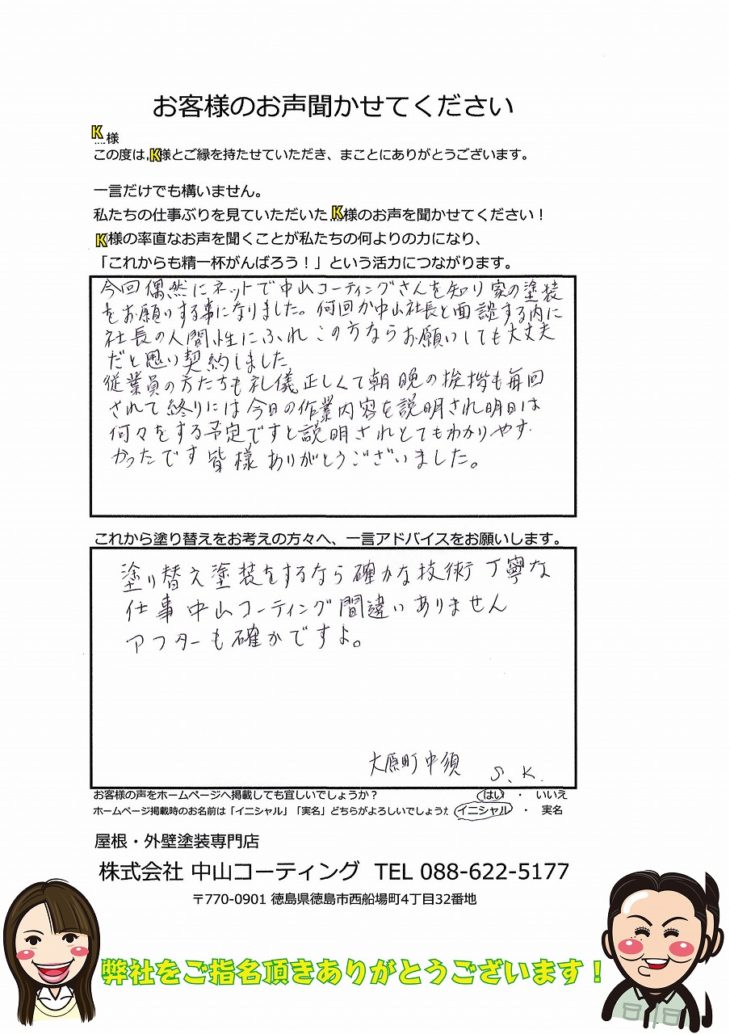 お客様のお声聞かせてください
K様
この度は、K様とご縁を持たせていただき、まことにありがとうございます。
一言だけでも構いません。
私たちの仕事ぶりを見ていただいたK様のお声を聞かせてください！
K様の率直なお声を聞くことが私たちの何よりの力になり、
「これからも精一杯がんばろう！」という活力につながります。
今回偶然にネットで中山コーティングさんを知り家の塗装
をお願いする事になりました。何回か中山社長と面談する内に
社長の人間性にふれこの方ならお願いしても大丈夫
だと思い契約しました
従業員の方たちも礼儀正しくて朝晩の挨拶も毎回
されて終りには今日の作業内容を説明され明日は
何々をする予定ですと説明されとてもわかりやす
かったです皆様ありがとうございました。
これから塗り替えをお考えの方々へ、一言アドバイスをお願いします。
塗り替え塗装をするなら確かな技術丁寧な
仕事中山コーティング間違いありません
アフターも確かですよ。
大原町中須 S.K.
お客様の声をホームページへ掲載しても宜しいでしょうか？ はい ・ いいえ
ホームページ掲載時のお名前は「イニシャル」「実名」どちらがよろしいでしょうか イニシャル ・ 実名
屋根・外壁塗装専門店
株式会社 中山コーティング TEL 088-622-5177
〒770-0901 徳島県徳島市西船場町4丁目32番地
弊社をご指名頂きありがとうございます！